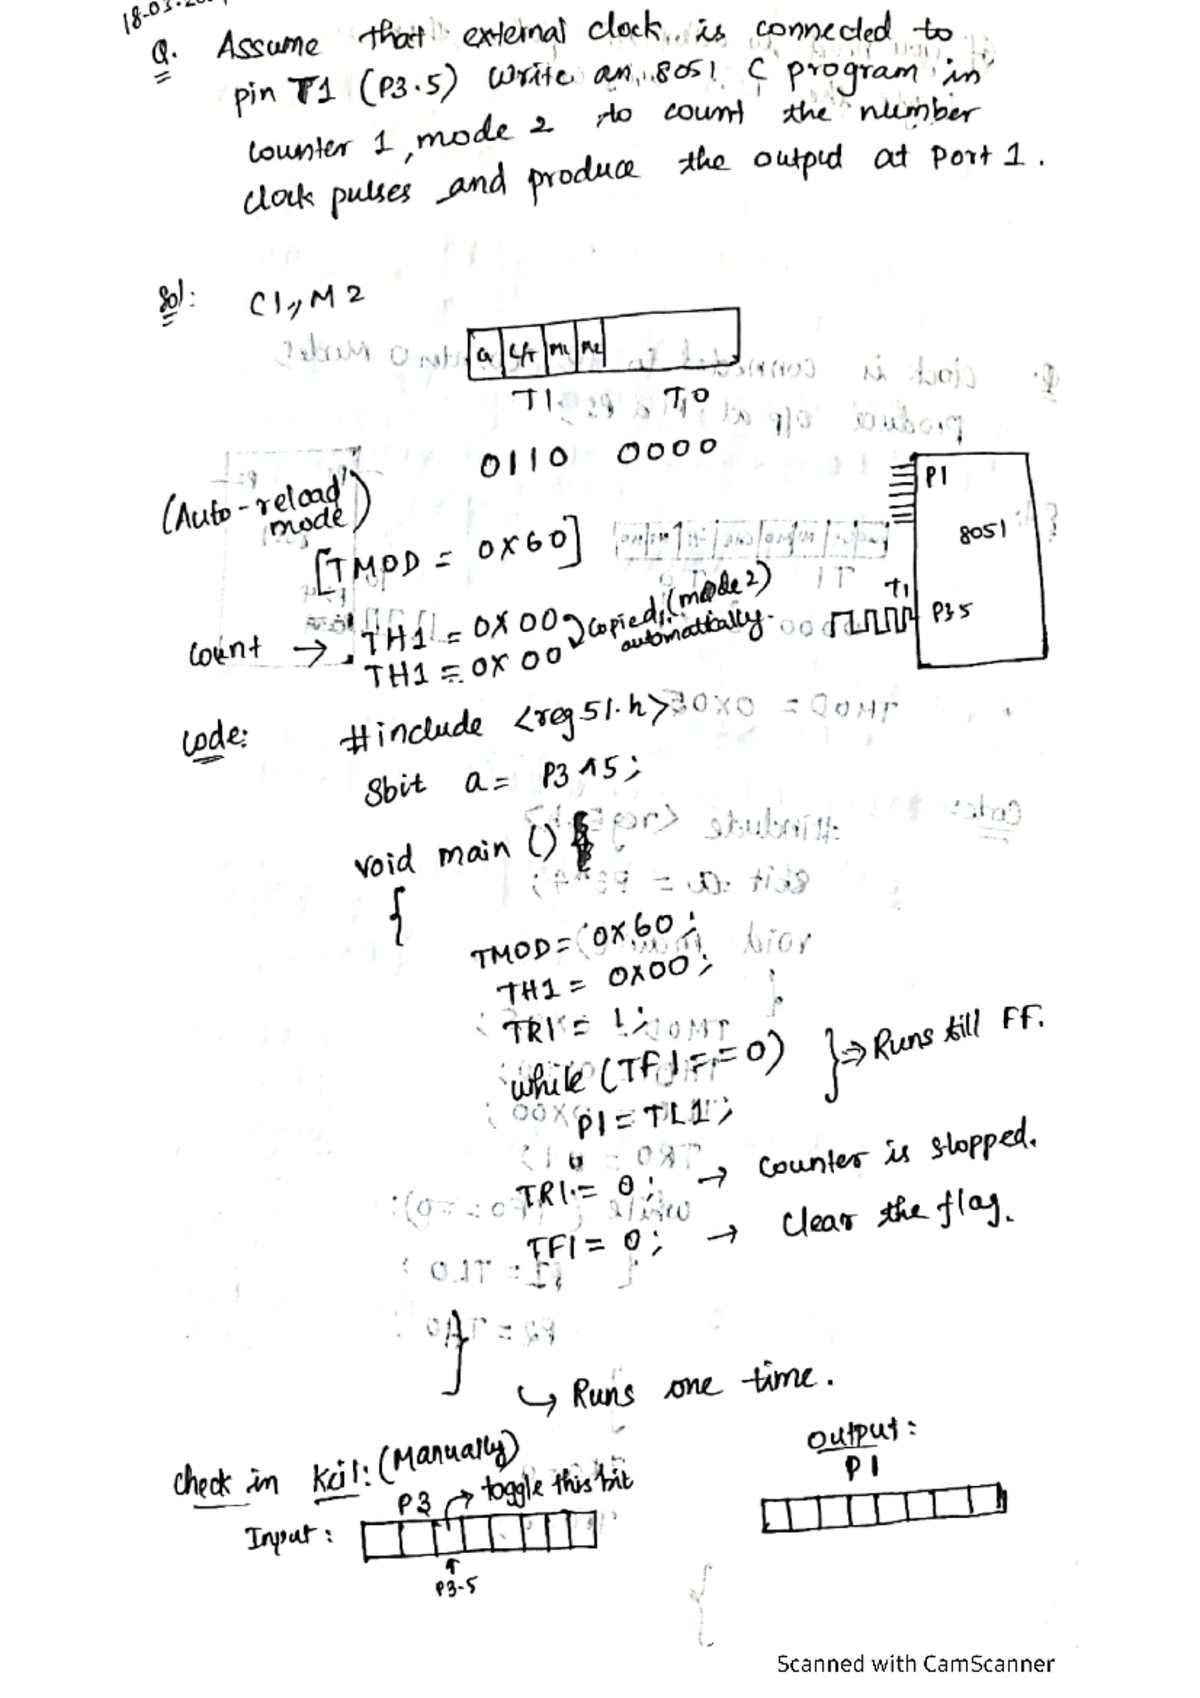 18-03-2
Q. Assume that external clock is connected to
pin T1 (P3.5) Write an 8051 C program in
counter 1, mode 2 to count the number
clock pulses and produce the output at Port 1.
Sol: C1, M2
G C/T M1 M2
T1 T0
0110 0000
(Auto-reload mode)
[TMOD = 0X60]
P1
8051
T1 P3.5
count → TH1 = 0X00 copied (mode 2)
TH1 = 0X00 automatically.
Code: #include <reg51.h>
Sbit a = P3^5;
void main ()
{
TMOD = 0X60;
TH1 = 0X00;
TR1 = 1;
while (TF1 == 0) } ⇒ Runs till FF.
P1 = TL1;
TR1 = 0; → Counter is stopped.
TF1 = 0; → Clear the flag.
}
↪ Runs one time.
Check in Keil: (Manually)
P3 → toggle this bit
Input:
P3.5
Output:
P1
Scanned with CamScanner